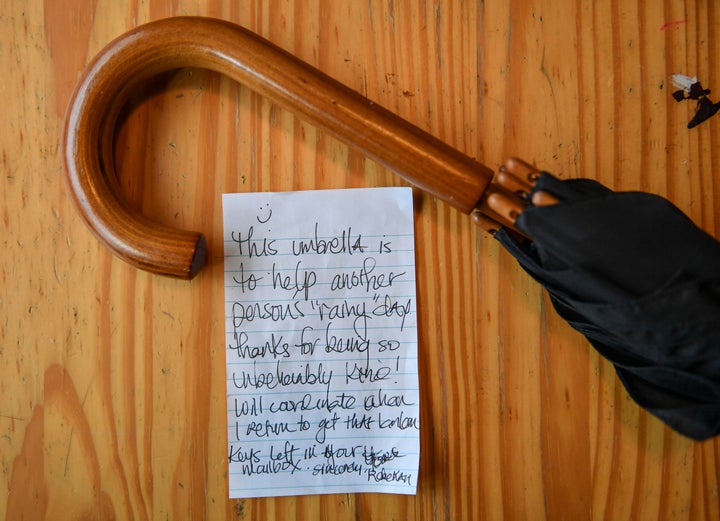 This umbrella is
to help another
persons "rainy" day
Thanks for being so
unbelievably kind!
Will coordinate when
I return to get that
Keys left in your
mailbox. Sincerely, Rebekah